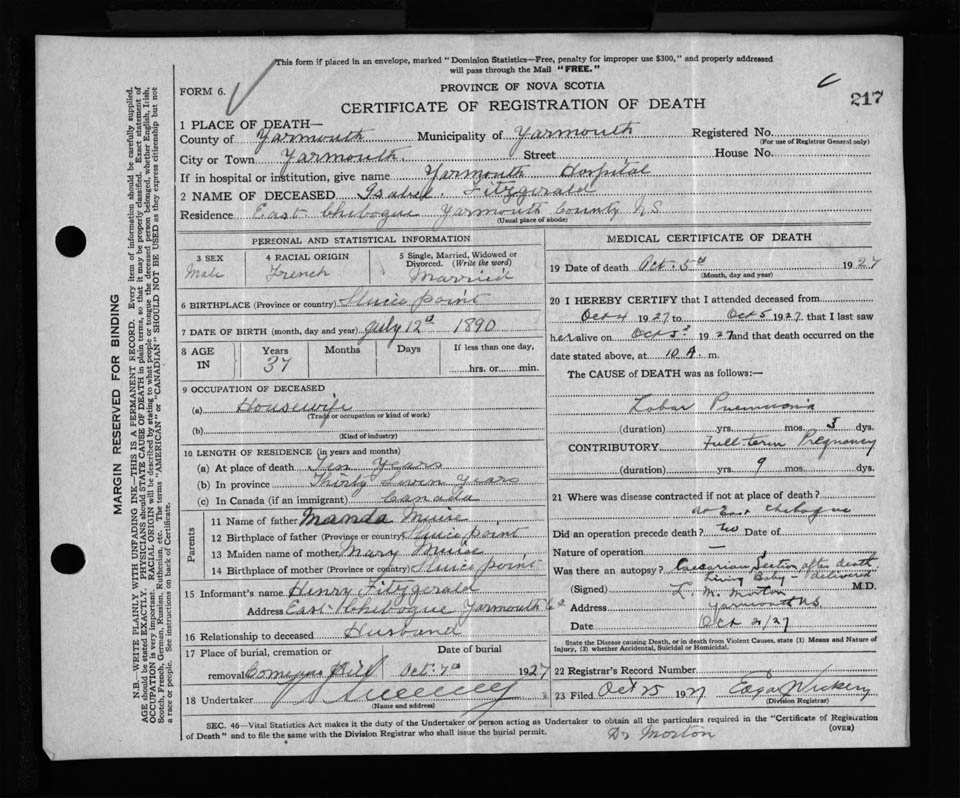 This form if placed in an envelope, marked "Dominion Statistics—Free, penalty for improper use $300," and properly addressed
will pass through the Mail "FREE."
FORM 6.
PROVINCE OF NOVA SCOTIA
CERTIFICATE OF REGISTRATION OF DEATH
217
1 PLACE OF DEATH—
County of Yarmouth Municipality of Yarmouth Registered No.
(For use of Registrar General only)
City or Town Yarmouth Street House No.
If in hospital or institution, give name Yarmouth Hospital
2 NAME OF DECEASED Isabel Fitzgerald
Residence East Chebogue Yarmouth County N.S.
(Usual place of abode)
PERSONAL AND STATISTICAL INFORMATION
3 SEX 4 RACIAL ORIGIN 5 Single, Married, Widowed or
Divorced. (Write the word)
Male French Married
6 BIRTHPLACE (Province or country) Sluice point
7 DATE OF BIRTH (month, day and year) July 12th 1890
8 AGE IN Years Months Days If less than one day,
37 hrs. or min.
9 OCCUPATION OF DECEASED
(a) Housewife
(Trade or occupation or kind of work)
(b)
(Kind of industry)
10 LENGTH OF RESIDENCE (in years and months)
(a) At place of death Ten Years
(b) In province Thirty Seven Years
(c) In Canada (if an immigrant) Canada
Parents
11 Name of father Manda Muise
12 Birthplace of father (Province or country) Sluice point
13 Maiden name of mother Mary Muise
14 Birthplace of mother (Province or country) Sluice point
15 Informant's name Henry Fitzgerald
Address East Chebogue Yarmouth Co
16 Relationship to deceased Husband
17 Place of burial, cremation or Date of burial
removal Oct. 7th 1927
18 Undertaker
(Name and address)
MEDICAL CERTIFICATE OF DEATH
19 Date of death Oct. 5th 1927
(Month, day and year)
20 I HEREBY CERTIFY that I attended deceased from
Oct 4 1927 to Oct 5 1927 that I last saw
her alive on Oct 5 1927 and that death occurred on the
date stated above, at 10 A. m.
The CAUSE of DEATH was as follows:—
Lobar Pneumonia
(duration) yrs. mos. 3 dys.
CONTRIBUTORY Full term Pregnancy
(duration) yrs. 9 mos. dys.
21 Where was disease contracted if not at place of death?
at East Chebogue
Did an operation precede death? No Date of
Nature of operation —
Was there an autopsy? Caesarian Section after death
Living Baby - delivered
(Signed) L. M. Morton M.D.
Address Yarmouth NS
Date Oct 21/27
State the Disease causing Death, or in death from Violent Causes, state (1) Means and Nature of
Injury, (2) whether Accidental, Suicidal or Homicidal.
22 Registrar's Record Number
23 Filed Oct 25 1927 Edgar Vickery
(Division Registrar)
SEC. 46—Vital Statistics Act makes it the duty of the Undertaker or person acting as Undertaker to obtain all the particulars required in the "Certificate of Registration
of Death" and to file the same with the Division Registrar who shall issue the burial permit.
(OVER)
Dr Morton
MARGIN RESERVED FOR BINDING
N.B.—WRITE PLAINLY WITH UNFADING INK—THIS IS A PERMANENT RECORD. Every item of information should be carefully supplied.
AGE should be stated EXACTLY. PHYSICIANS should STATE CAUSE OF DEATH in plain terms, so that it may be properly classified. Exact statement of
OCCUPATION is very important. RACIAL ORIGIN will be described by stating to what people or tongue the deceased person belonged, whether English, Irish,
Scotch, French, German, Russian, Ruthenian, etc. The terms "AMERICAN" or "CANADIAN" SHOULD NOT BE USED as they express citizenship but not
a race or people. See instructions on back of Certificate.